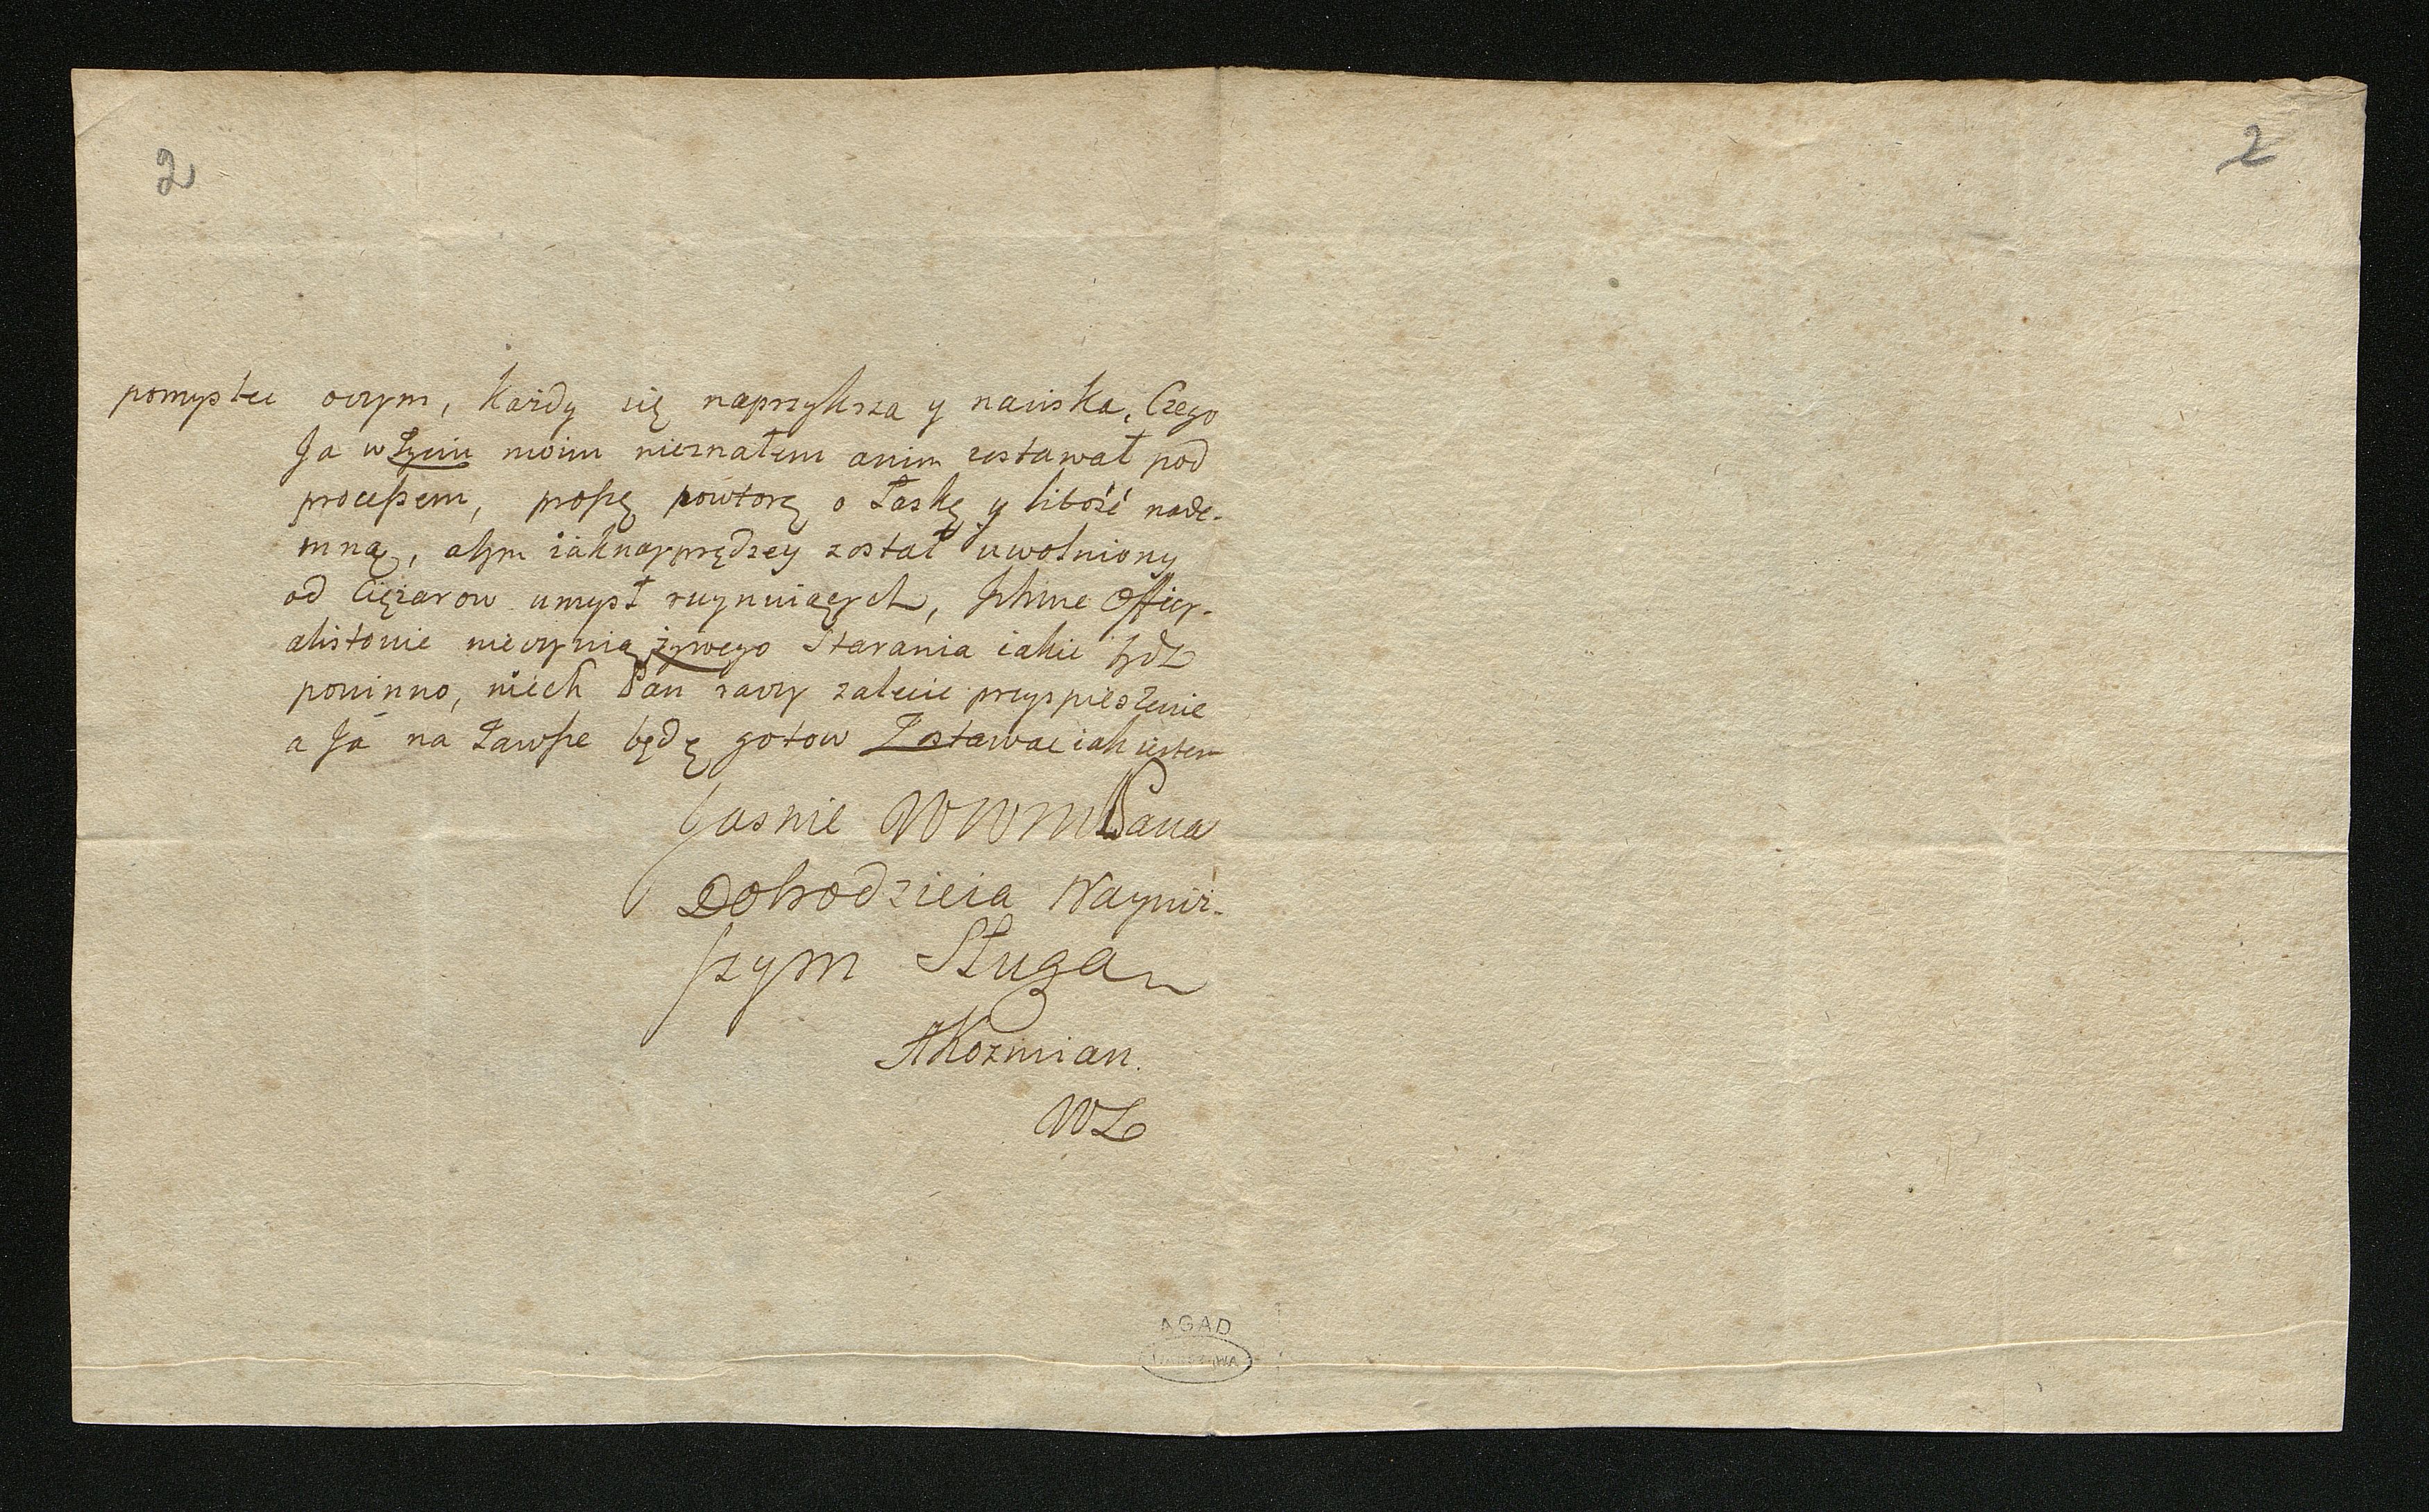 2
2
pomysłu oczym, każdy się naprzyksza y naciska, Czego
Ja w Życiu moim nieznałem anim zostawał pod
processem, proszę powtorę o Łaskę y litość nade-
mną, abym iaknayprędzey został uwolniony
od Ciężarow umysł ruynuiących, Jchmc Officy-
alistowie nieczynią żywego Starania iakie bydź
powinno, niech Pan raczy zalecić przyspieszenie
a Ja na Zawsze będę gotow Zostawac iak iestem
Jasnie WWMPana
Dobrodzieia Nayniż-
szym Sługa
AKozmian.
WL
AGAD
WARSZAWA